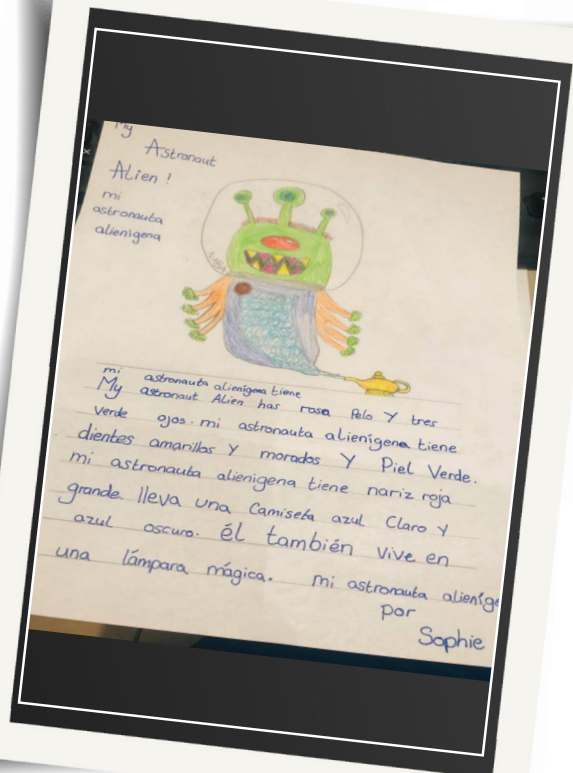 My
Astronaut
Alien !
mi
astronauta
alienigena
NASA
mi astronauta alienígena tiene
My astronaut Alien has rosa Pelo Y tres
verde ojos. mi astronauta alienígena tiene
dientes amarillos Y morados Y Piel Verde.
mi astronauta alienigena tiene nariz roja
grande. lleva una Camiseta azul Claro Y
azul oscuro. él también vive en
una lámpara mágica. mi astronauta alieníge
por
Sophie